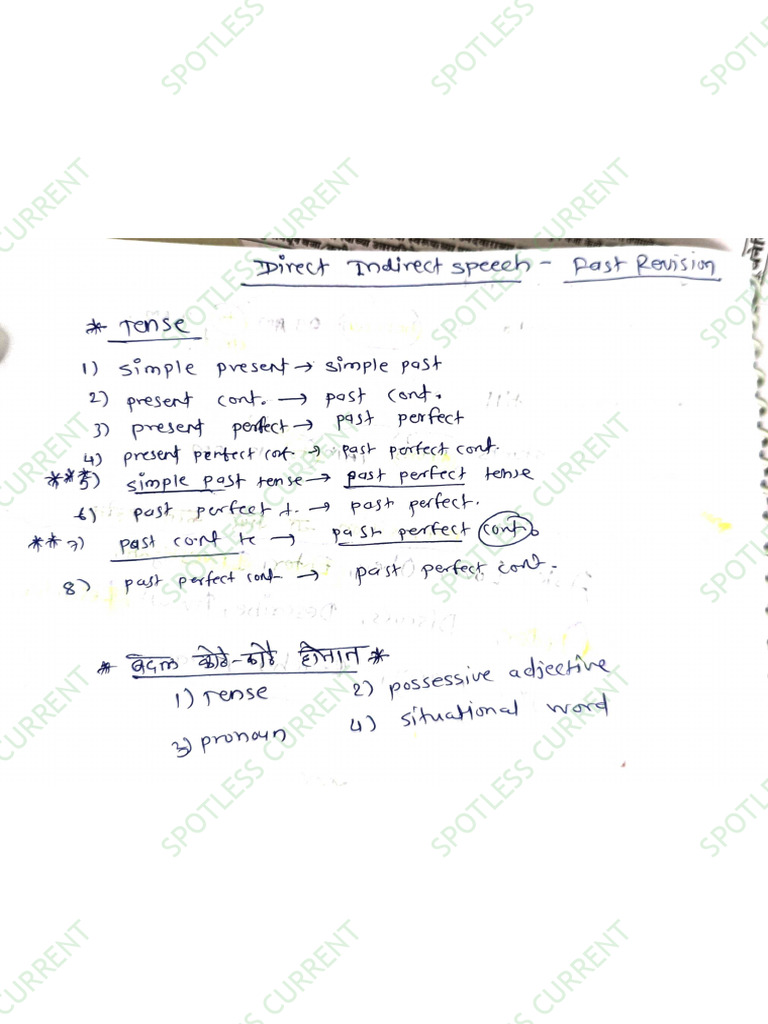 Direct Indirect speech - Past Revision
* Tense
1) simple present → simple past
2) present cont. → past cont.
3) present perfect → past perfect
4) present perfect cont → past perfect cont.
***5) simple past tense → past perfect tense
6) past perfect t. → past perfect.
**7) past cont te → past perfect cont.
8) past perfect cont → past perfect cont.
* बदल कोठे-कोठे होतात *
1) Tense 2) possessive adjective
3) pronoun 4) situational word
SPOTLESS CURRENT